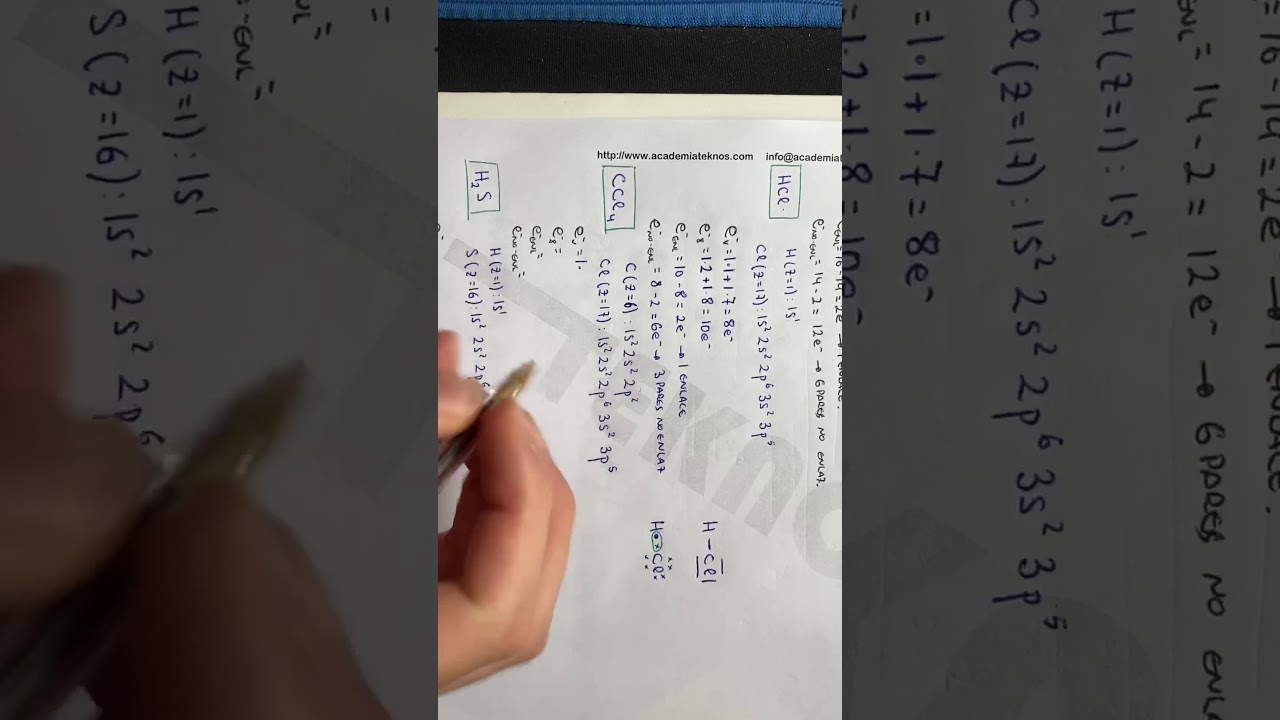 http://www.academiateknos.com info@academiat
e⁻ENL=16-14=2e⁻ → 1 ENLACE.
e⁻NO-ENL = 14-2 = 12e⁻ → 6 PARES NO ENLAZ.
HCl.
H(z=1): 1s¹
Cl(z=17): 1s² 2s² 2p⁶ 3s² 3p⁵
e⁻v = 1·1 + 1·7 = 8e⁻
e⁻8 = 1·2 + 1·8 = 10e⁻
e⁻ENL = 10 - 8 = 2e⁻ → 1 ENLACE
e⁻NO-ENL = 8-2 = 6e⁻ → 3 PARES NO ENLAZ
H-Cl
H Cl
CCl₄
C(z=6): 1s² 2s² 2p²
Cl(z=17): 1s² 2s² 2p⁶ 3s² 3p⁵
e⁻v = 1·
e⁻8 =
e⁻ENL =
e⁻NO-ENL =
H₂S
H(z=1): 1s¹
S(z=16): 1s² 2s² 2p⁶
TEKNO